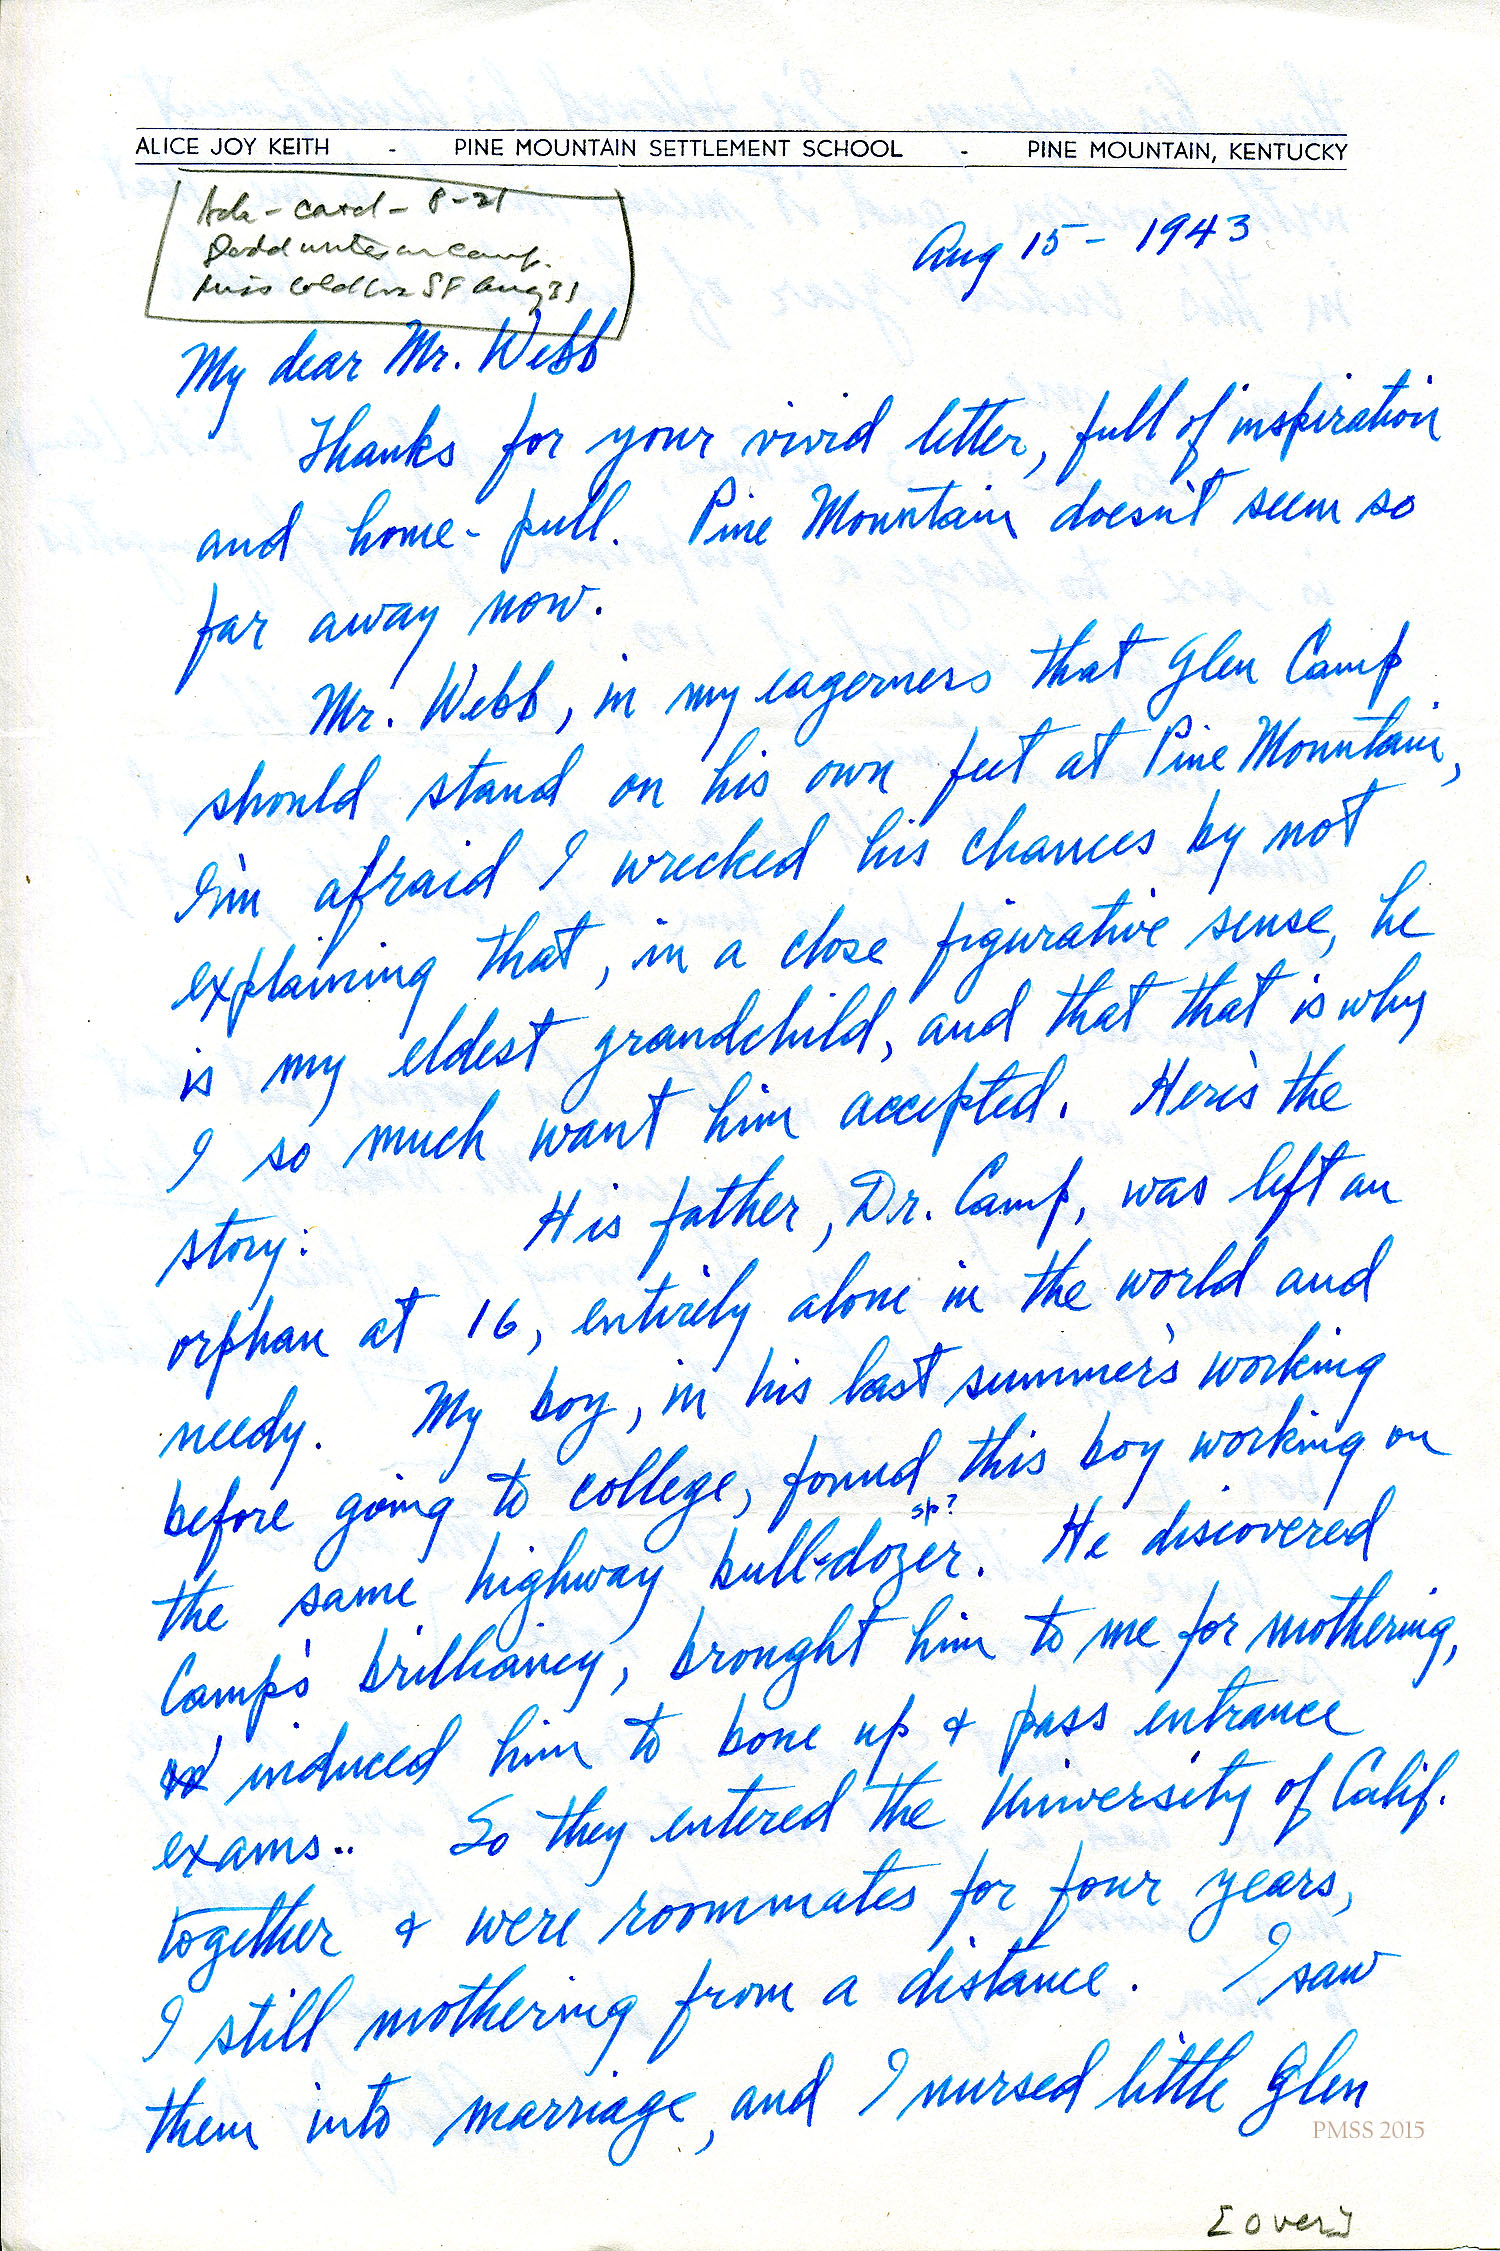 ALICE JOY KEITH - PINE MOUNTAIN SETTLEMENT SCHOOL - PINE MOUNTAIN, KENTUCKY
Ack - card - 8-21
Dodd writes on Camp.
Miss Cold SF Aug 31
Aug 15 - 1943
My dear Mr. Webb
Thanks for your vivid letter, full of inspiration
and home-pull. Pine Mountain doesn't seem so
far away now.
Mr. Webb, in my eagerness that Glen Camp
should stand on his own feet at Pine Mountain,
I'm afraid I wrecked his chances by not
explaining that, in a close figurative sense, he
is my eldest grandchild, and that that is why
I so much want him accepted. Here's the
story: His father, Dr. Camp, was left an
orphan at 16, entirely alone in the world and
needy. My boy, in his last summer's working
before going to college, found this boy working on
sp?
the same highway bull-dozer. He discovered
Camp's brilliancy, brought him to me for mothering,
induced him to bone up & pass entrance
exams.. So they entered the University of Calif.
together & were roommates for four years,
I still mothering from a distance. I saw
them into marriage, and I nursed little Glen
PMSS 2015
[over]